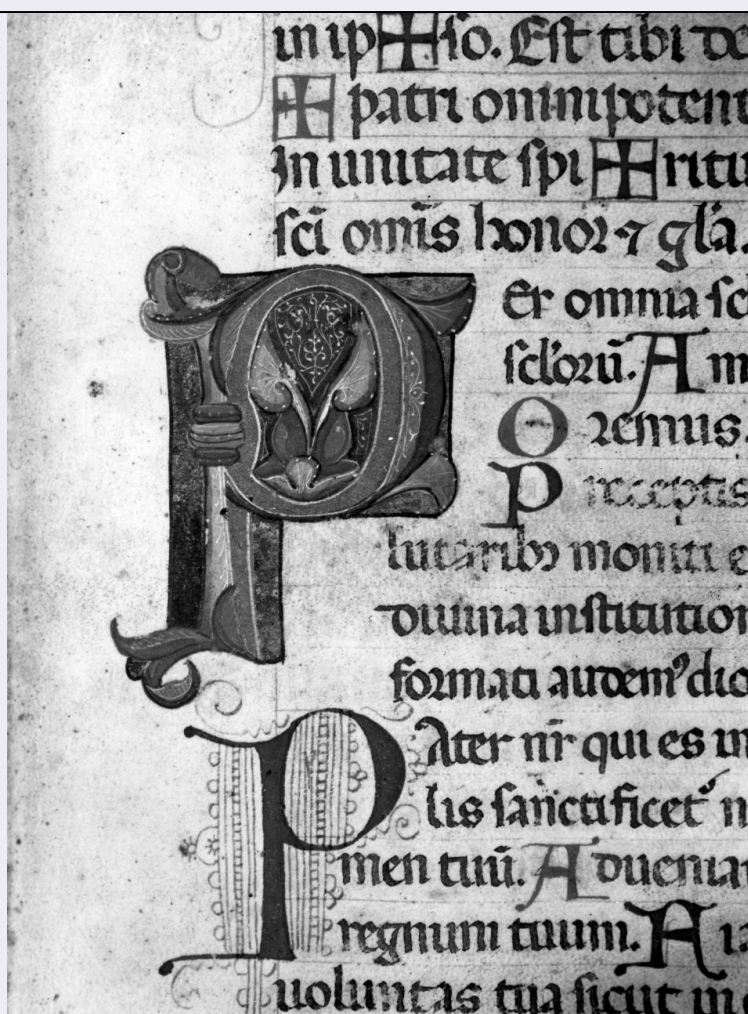 in ip✠so. Est tibi de
✠ patri omnipoten
In unitate spi✠ritu
sci omis honor ⁊ gla.
Per omnia sc
sclorū. Am
Oremus.
Preceptis
lutaribꝫ moniti e
diuina institution
formati audem⁹ dic
Pater nr̄ qui es in
lis sanctificet᷑ n
men tuū. Aduenia
regnum tuum.
uoluntas tua sicut in